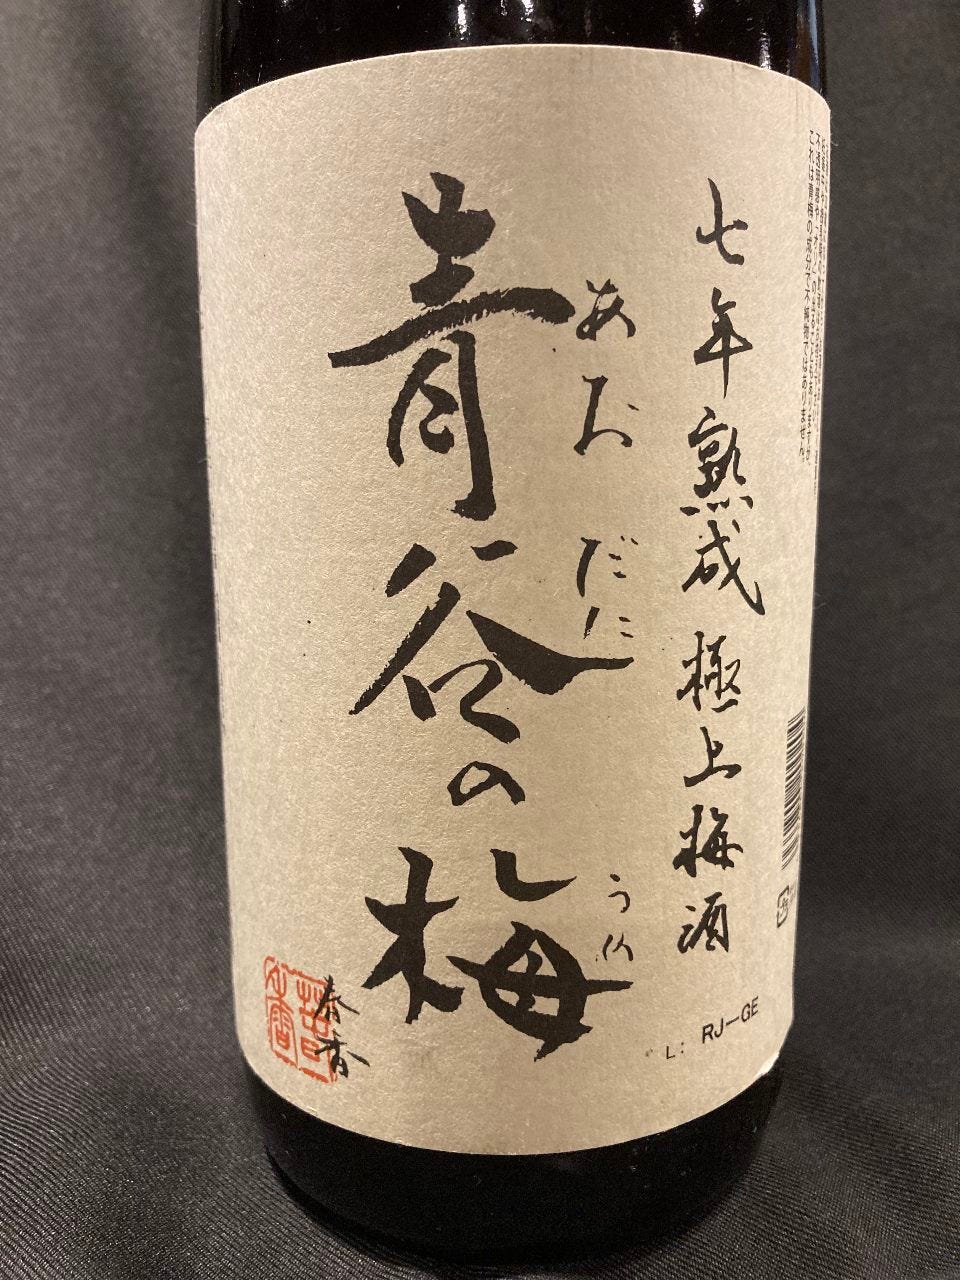 七年熟成 極上梅酒
青谷の梅
あおだに
うめ
春香
L: RJ-GE